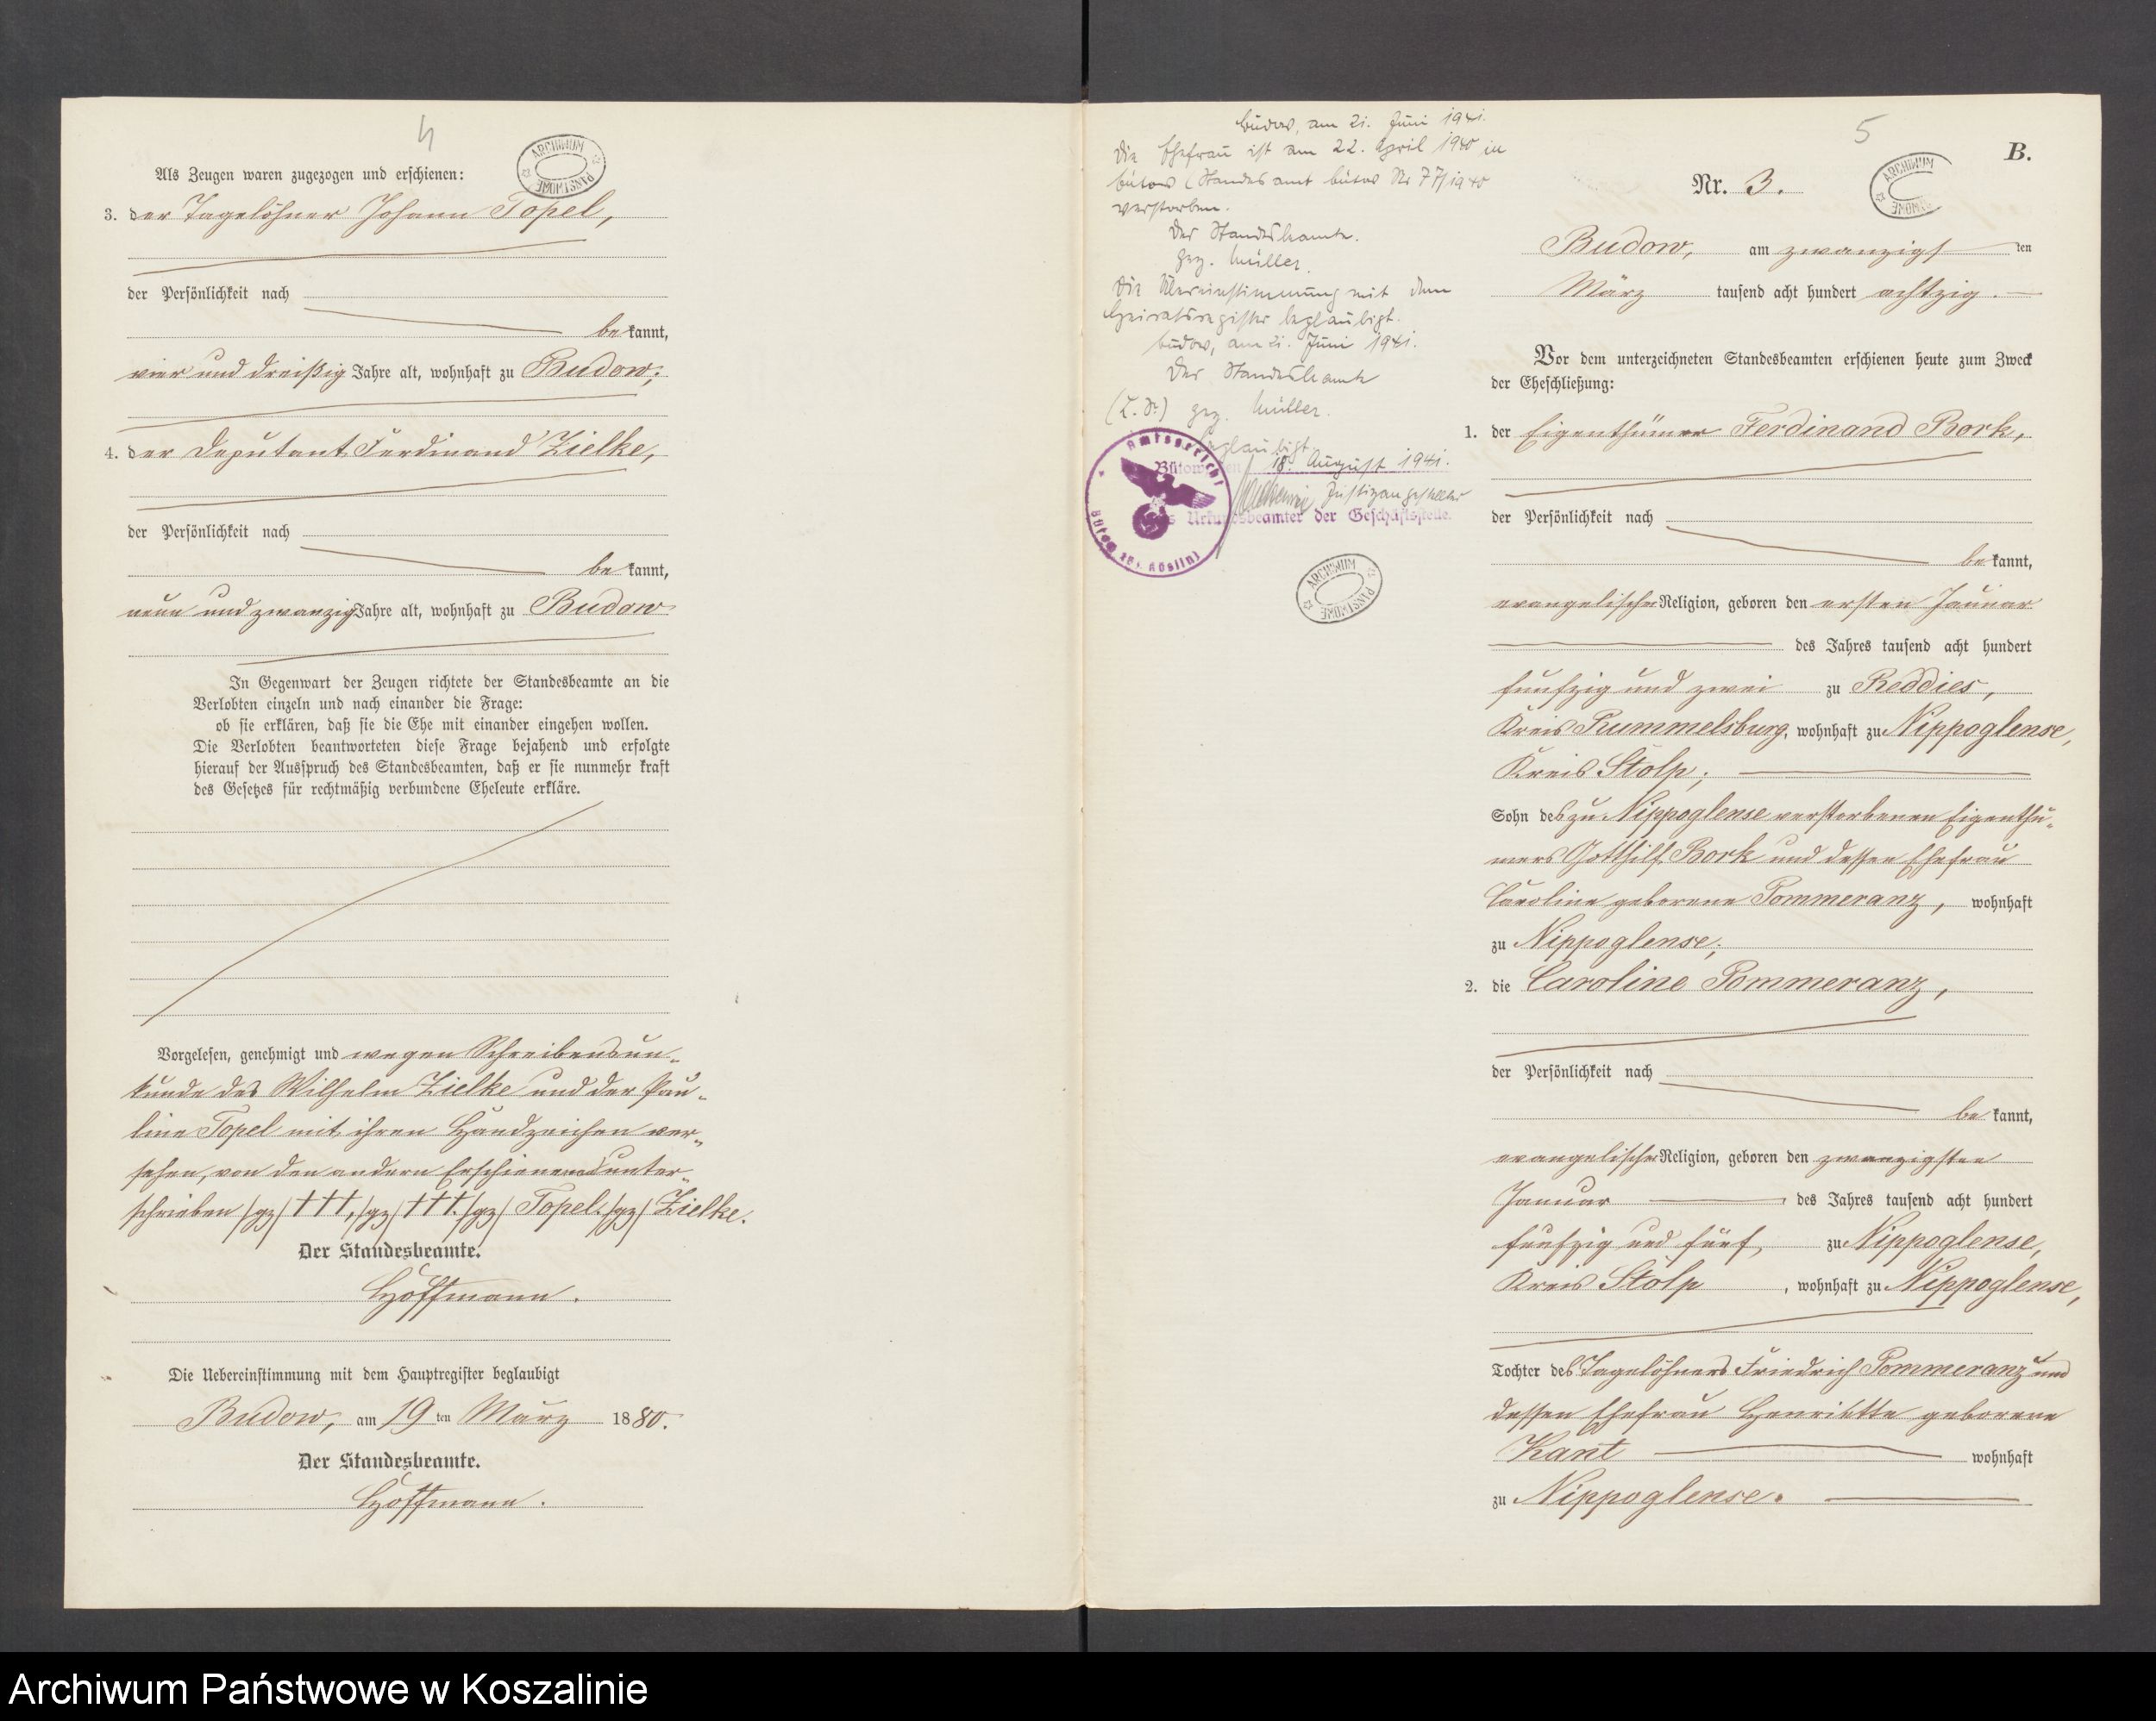 4
ARCHIWUM PAŃSTWOWE
Als Zeugen waren zugezogen und erschienen:
3. der Tagelöhner Johann Topel,
der Persönlichkeit nach
be kannt,
vier und dreißig Jahre alt, wohnhaft zu Budow;
4. der Deputant Ferdinand Zielke,
der Persönlichkeit nach
be kannt,
neun und zwanzig Jahre alt, wohnhaft zu Budow
In Gegenwart der Zeugen richtete der Standesbeamte an die
Verlobten einzeln und nach einander die Frage:
ob sie erklären, daß sie die Ehe mit einander eingehen wollen.
Die Verlobten beantworteten diese Frage bejahend und erfolgte
hierauf der Ausspruch des Standesbeamten, daß er sie nunmehr kraft
des Gesetzes für rechtmäßig verbundene Eheleute erkläre.
Vorgelesen, genehmigt und wegen Schreibensun-
kunde des Wilhelm Zielke und der Pau-
line Topel mit ihren Handzeichen ver-
sehen, von den andern Erschienenen unter-
schrieben /gz/ †††, /gz/ †††. /gz/ Topel. /gz/ Zielke.
Der Standesbeamte.
Hoffmann.
Die Uebereinstimmung mit dem Hauptregister beglaubigt
Budow, am 19 ten März 1880.
Der Standesbeamte.
Hoffmann.
Budow, am 21. Juni 1941.
Die Ehefrau ist am 22. April 1940 in
Bütow (Standesamt Bütow Nr 77/1940
verstorben.
Der Standesbeamte.
gez. Müller.
Die Übereinstimmung mit dem
Heiratsregister beglaubigt.
Budow, am 21. Juni 1941.
Der Standesbeamte
(L. S.) gez. Müller.
Beglaubigt
Bütow, den 18. August 1941.
Justizangestellter
als Urkundsbeamter der Geschäftsstelle.
Amtsgericht Bütow (Bz. Köslin)
ARCHIWUM PAŃSTWOWE
5
B.
ARCHIWUM PAŃSTWOWE
Nr. 3.
Budow, am zwanzigs ten
März tausend acht hundert achtzig.
Vor dem unterzeichneten Standesbeamten erschienen heute zum Zweck
der Eheschließung:
1. der Eigenthümer Ferdinand Bork,
der Persönlichkeit nach
be kannt,
evangelischer Religion, geboren den ersten Januar
des Jahres tausend acht hundert
funfzig und zwei zu Reddies,
Kreis Rummelsburg, wohnhaft zu Nippoglense,
Kreis Stolp;
Sohn des zu Nippoglense verstorbenen Eigenthü-
mers Gotthilf Bork und dessen Ehefrau
Caroline geborene Pommeranz, wohnhaft
zu Nippoglense;
2. die Caroline Pommeranz,
der Persönlichkeit nach
be kannt,
evangelischer Religion, geboren den zwanzigsten
Januar des Jahres tausend acht hundert
funfzig und fünf, zu Nippoglense,
Kreis Stolp, wohnhaft zu Nippoglense,
Tochter des Tagelöhners Friedrich Pommeranz und
dessen Ehefrau Henriette geborene
Kant wohnhaft
zu Nippoglense.
Archiwum Państwowe w Koszalinie